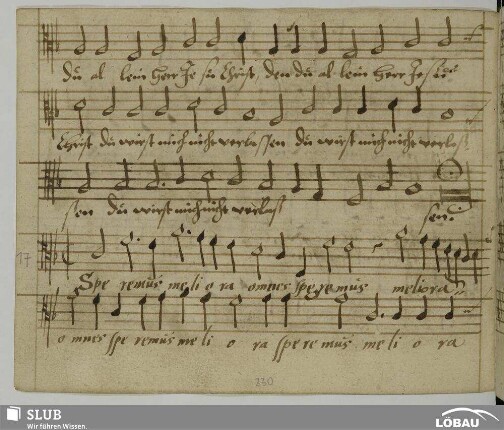 du al lein Herr Je su Christ, den du al lein Herr Jesu
Christ du wirst mich nicht verlassen du wirst mich nicht verlas
sen du wirst mich nicht verlas sen.
17
Spe remus me li o ra omnes speremus meliora
omnes spe remus me li o ra spe remus me li o ra
220
SLUB
Wir führen Wissen.
LÖBAU